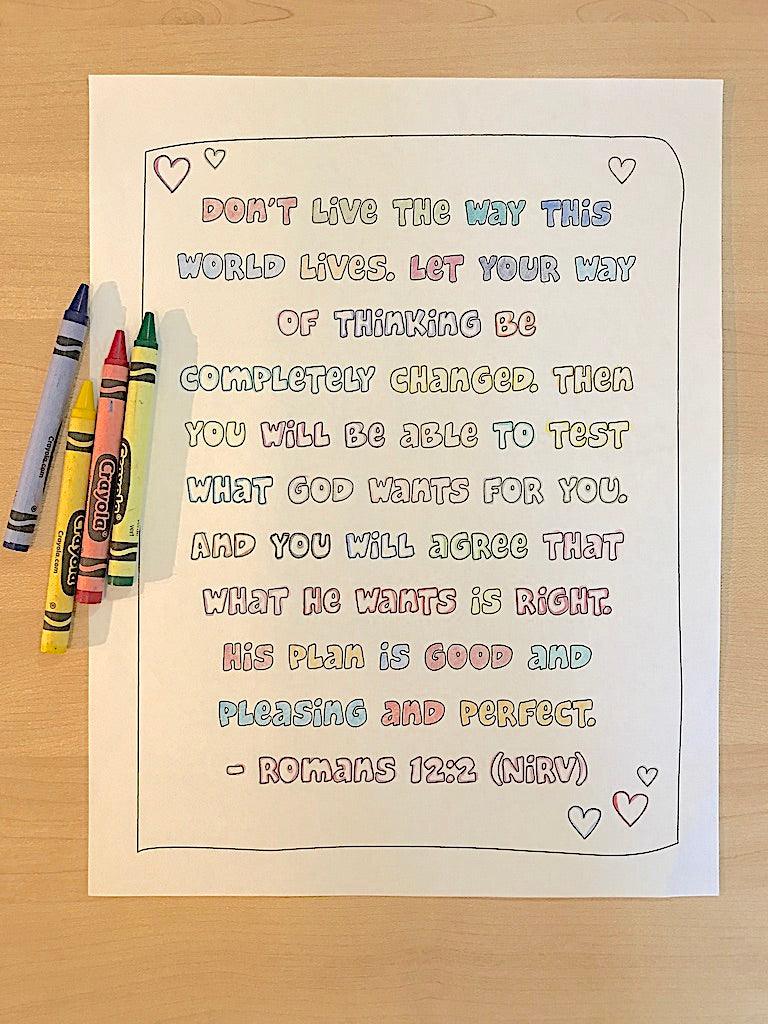 DON'T LIVE THE WAY THIS
WORLD LIVES. LET YOUR WAY
OF THINKING BE
COMPLETELY CHANGED. THEN
YOU WILL BE ABLE TO TEST
WHAT GOD WANTS FOR YOU.
AND YOU WILL AGREE THAT
WHAT HE WANTS IS RIGHT.
HIS PLAN IS GOOD AND
PLEASING AND PERFECT.
- ROMANS 12:2 (NIRV)
Crayola.com ®
Crayola.com ®
Crayola
Crayola ®
Crayola